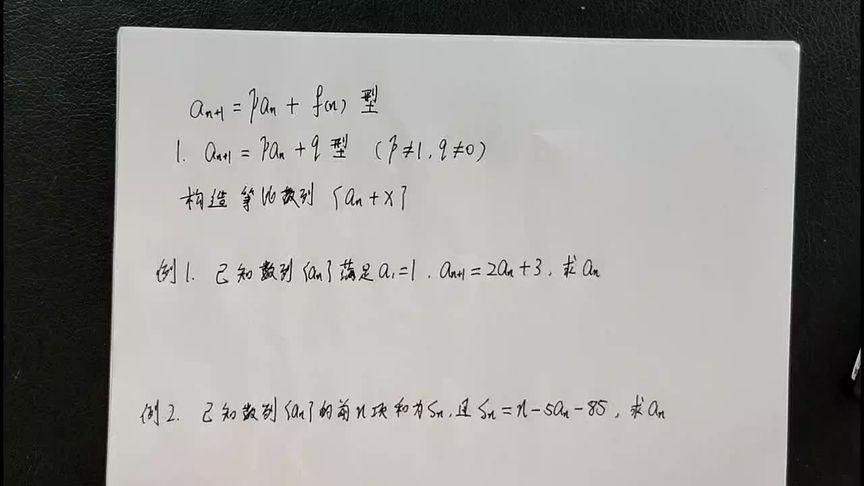 aₙ₊₁ = paₙ + f(n) 型
1. aₙ₊₁ = paₙ + q 型 (p≠1, q≠0)
构造等比数列 {aₙ + x}
例1. 已知数列{aₙ}满足a₁=1, aₙ₊₁=2aₙ+3, 求aₙ
例2. 已知数列{aₙ}的前n项和为Sₙ, 且Sₙ=n-5aₙ-85, 求aₙ